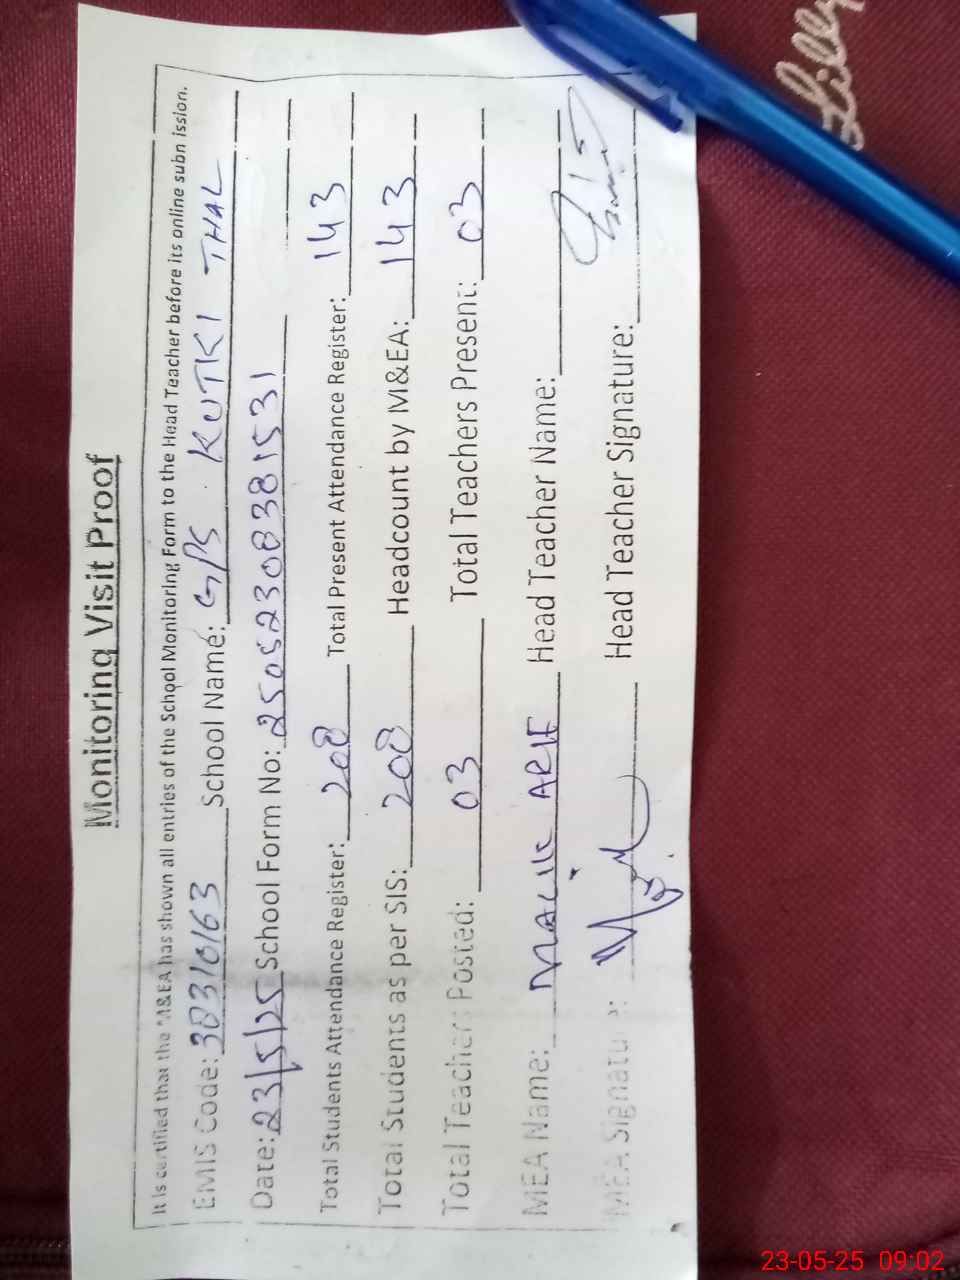 Monitoring Visit Proof
It is certified that the M&EA has shown all entries of the School Monitoring Form to the Head Teacher before its online submission.
EMIS Code: 38310163 School Name: GPS KUTKI THAL
Date: 23/5/25 School Form No: 25052308381531
Total Students Attendance Register: 208 Total Present Attendance Register: 143
Total Students as per SIS: 208 Headcount by M&EA: 143
Total Teachers Posted: 03 Total Teachers Present: 03
MEA Name: MALIK ARIF Head Teacher Name:
MEA Signature: Head Teacher Signature:
Lilly
23-05-25 09:02